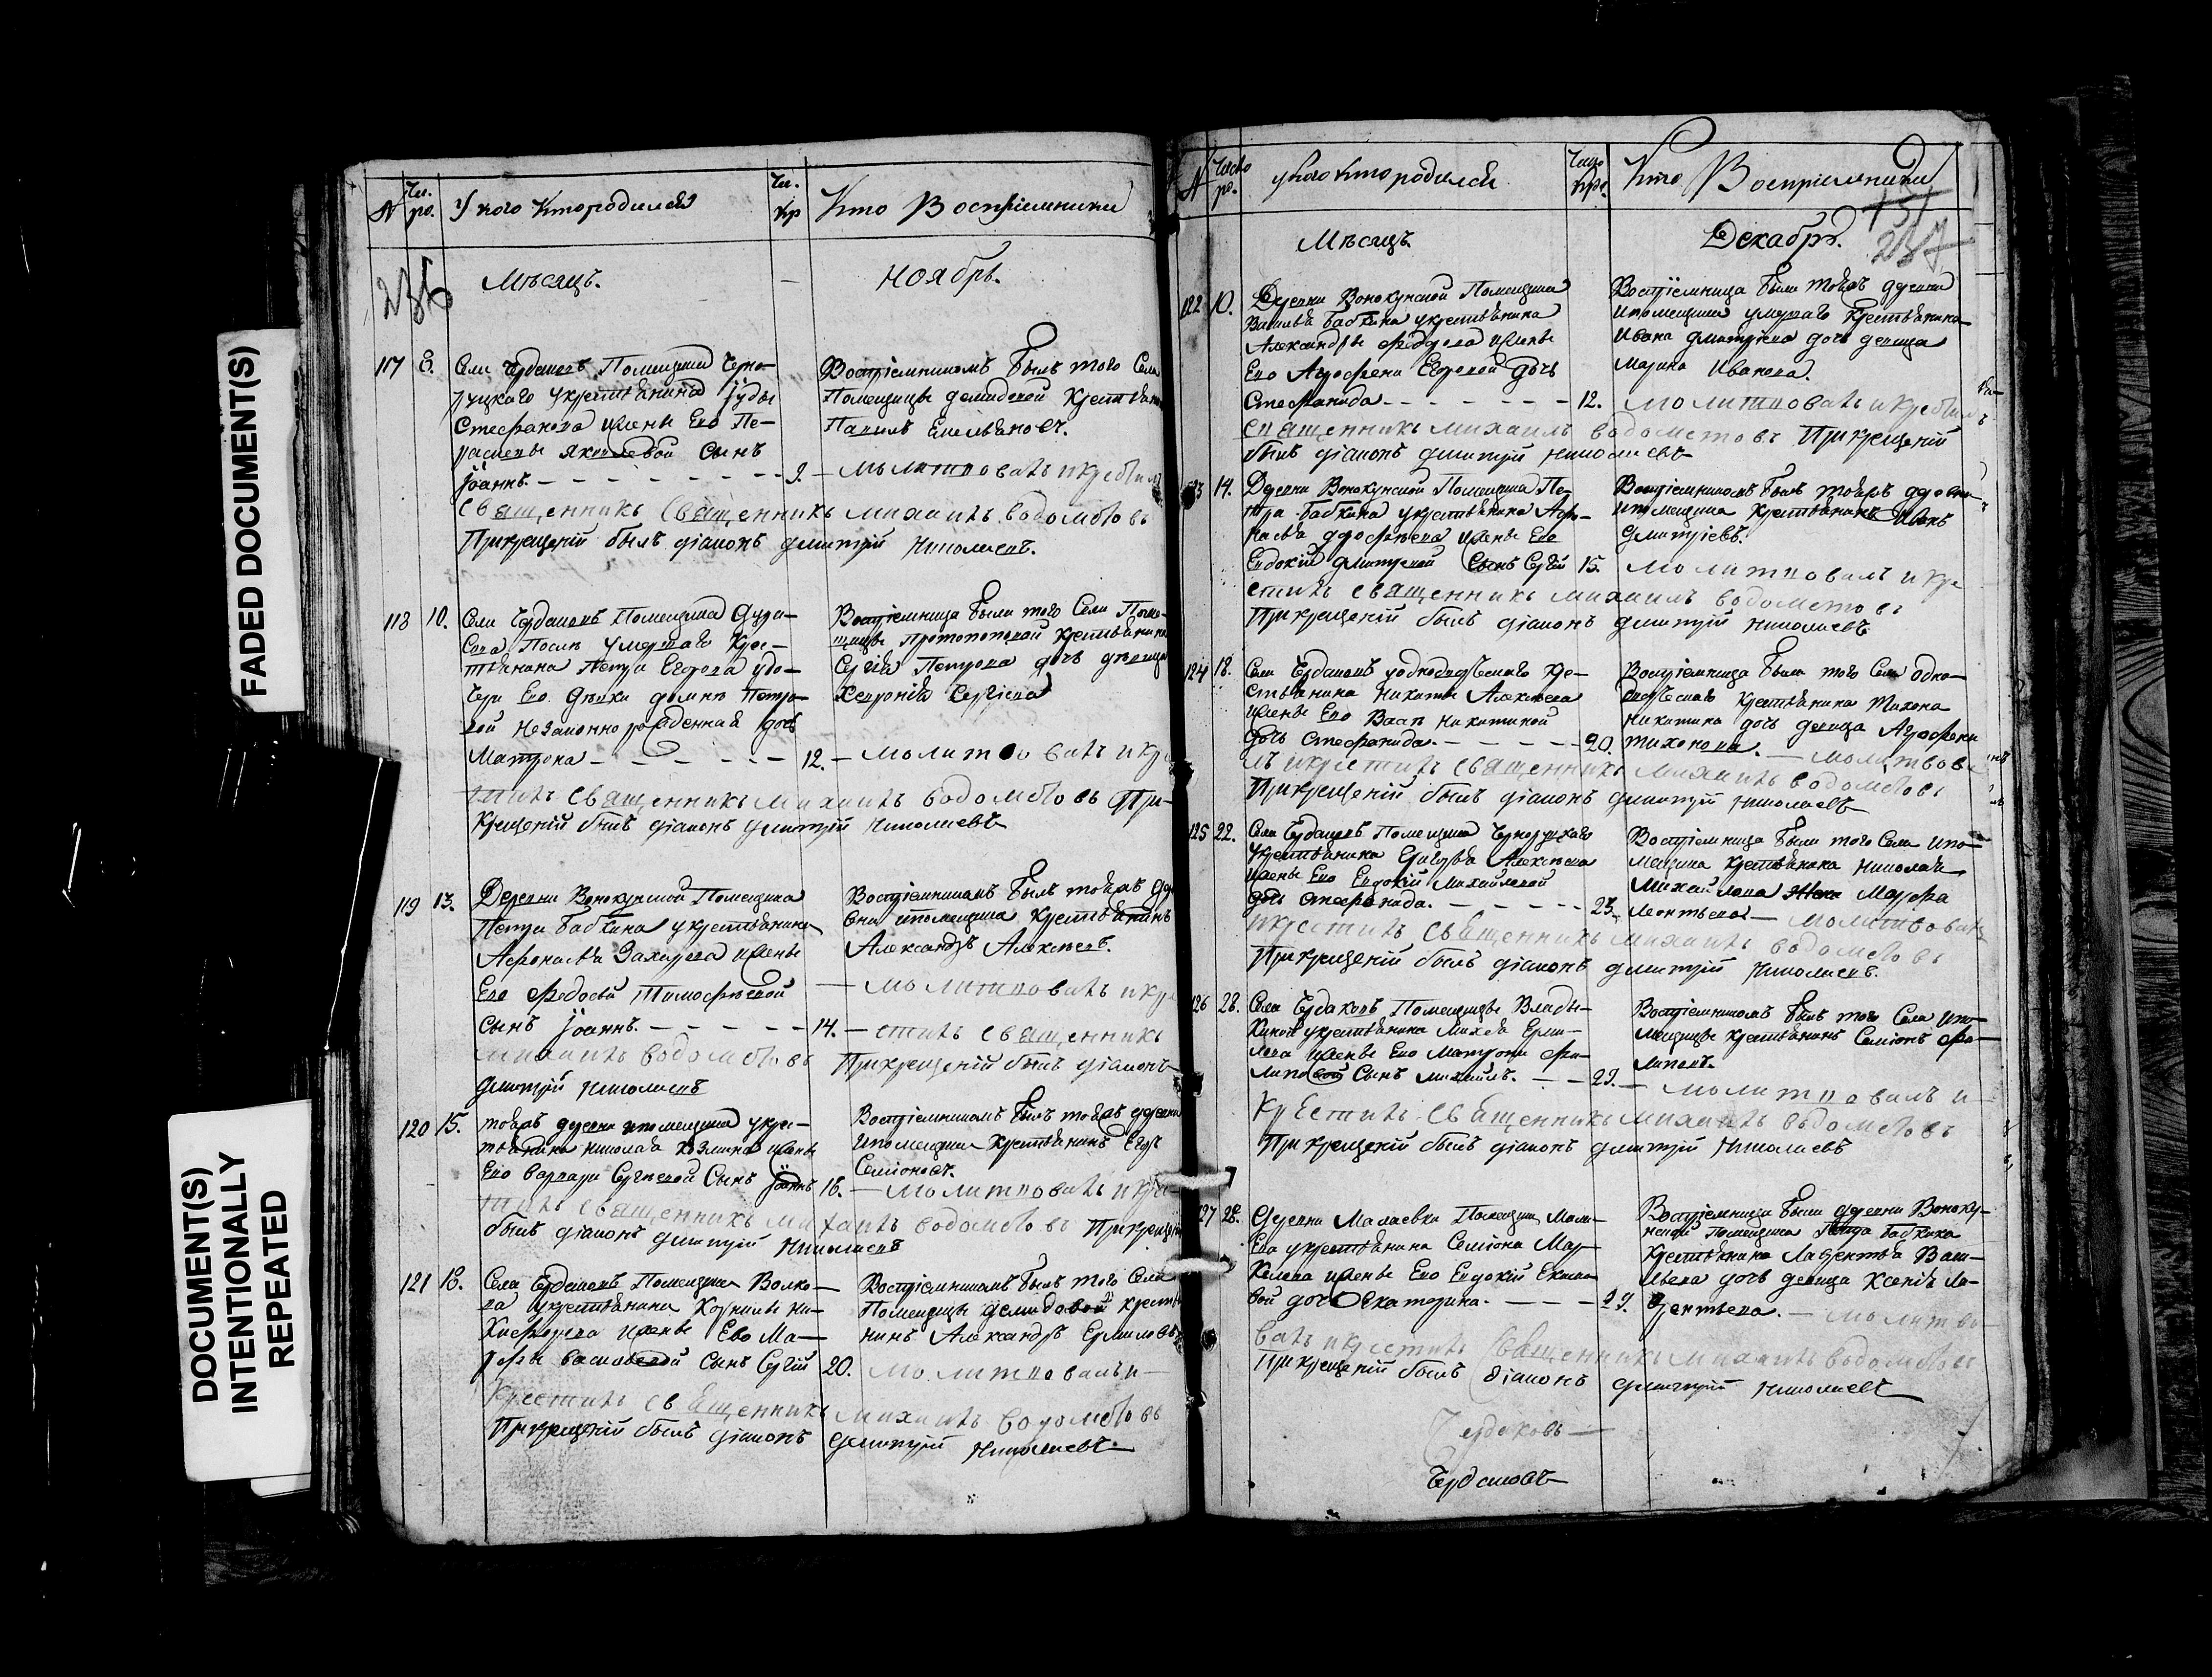 FADED DOCUMENT(S)
DOCUMENT(S)
INTENTIONALLY
REPEATED
№ Чи. ро. У кого кто родился Чи. кр Кто Восприемники
236 Мѣсяцъ. — Ноябрь.
117 8. Села Чердаковъ Помещика Черно-
руцкаго укрестьянина Іуды
Стефанова ижены Его Пе-
лагеи Яковлевой Сынъ
Іоаннъ. — 9.
Воспріемникомъ былъ того Села
Помещицы Демидовой Крестьянинъ
Емельяновъ.
— молитвовалъ и крестилъ
Священникъ Священникъ михаилъ водолетовъ
При крещеніи былъ діаконъ дмитрій Николаевъ.
118 10. Села Чердаковъ Помещика
После умершаго Крес-
тьянина Петра Егорова удо-
чери Его девки Домны Петро-
вой незаконно рожденная дочь
Матрона — 12.
Восприемница была того Села Поме-
щицы Протопоповой Крестьянина
Сергѣя Петрова дочь девица
Сергѣева
— молитвовалъ и кре
стилъ священникъ михаилъ водолетовъ При-
крещеніи былъ діаконъ дмитрій Николаевъ
119 13. Деревни Вонокунской Помещика
Петра Бабкина укрестьянина
Афонасья Захарова ижены
Его Федосьи Тимофѣевой
сынъ Іоаннъ. — 14.
Воспріемникомъ былъ тойжъ дере
вни ипомещика Крестьянинъ
Александръ Алексѣевъ.
— молитвовалъ и кре
— стилъ священникъ
михаилъ водолетовъ При крещеніи былъ діаконъ
дмитрій Николаевъ
120 15. тойжъ деревни ипомещика укрес-
тьянина Николая Козлина ижены
Его Варвары Сергѣевой Сынъ Іоаннъ 16.
Воспріемникомъ былъ тойжъ деревни
ипомещика Крестьянинъ Егоръ
Семіоновъ.
— молитвовалъ и кре-
стилъ священникъ михаилъ водолетовъ При креще
былъ діаконъ дмитрій Николаевъ
121 18. Села Чердаковъ Помещика Волко-
ва укрестьянина Корнилы Ни-
кифорова ижены Ево Ма-
рфы Васильевой Сынъ Сергій 20.
Воспріемникомъ былъ того Села
Помещицы Демидовой крестья
нинъ Александръ Ермиловъ
молитвовалъ и —
крестилъ священникъ михаилъ водолетовъ
При крещеніи былъ діаконъ дмитрій Николаевъ.
№ Число ро. У кого кто родился Число кре. Кто Восприемники
151
237
Мѣсяцъ. Декабрь.
122 10. Деревни Вонокунской Помещика
Василья Бабкина укрестьянина
Александры Федорова ижены
Его Агрофены Егоровой дочь
Стефанида — 12.
Воспріемница была тойжъ деревни
ипомещика умершаго Крестьянина
Ивана Дмитріева дочь девица
Марина Иванова.
молитвовалъ и крестилъ
священникъ михаилъ водолетовъ При крещеніи
былъ діаконъ дмитрій Николаевъ
123 14. Деревни Вонокунской Помещика Пе-
тра Бабкина укрестьянина Афо-
насья Дорофѣева ижены Его
Евдокіи Дмитревой Сынъ Сергій 15.
Воспріемникомъ былъ тойжъ деревни
ипомещика Крестьянинъ Иванъ
Дмитріевъ.
молитвовалъ и кре
стилъ священникъ михаилъ водолетовъ
При крещеніи былъ діаконъ дмитрій Николаевъ
124 18. Села Чердаковъ уоднодворческаго кре-
стьянина Никиты Алексѣева
ижены Его Вассы Никитиной
дочь Стефанида. — 20.
Воспріемница была того Села одно-
дворческаго Крестьянина Тихона
Никитина дочь девица Агрофена
Тихонова. — молитвова
лъ и крестилъ священникъ михаилъ водолетовъ
При крещеніи былъ діаконъ дмитрій Николаевъ
125 22. Села Чердаковъ Помещика Черноруцкаго
укрестьянина Григорья Алексѣева
ижены Его Евдокіи Михайловой
дочь Стефанида. — 23.
Воспріемница была того Села ипо-
мещика Крестьянина Николая
Михайлова жена Марфа
Леонтьева — молитвовалъ
и крестилъ священникъ михаилъ водолетовъ
При крещеніи былъ діаконъ дмитрій Николаевъ.
126 28. Села Чердаковъ Помещицы Влады-
киной укрестьянина Михея Ерми-
лова ижены Его Матроны Фи-
липовой Сынъ Михаилъ. — 29.
Воспріемникомъ былъ того Села ипо-
мещицы Крестьянинъ Семіонъ Фи-
липовъ.
— молитвовалъ и —
крестилъ священникъ михаилъ водолетовъ
При крещеніи былъ діаконъ дмитрій Николаевъ
127 28. Деревни Малаевки Помещика Мала-
ева укрестьянина Семіона Мар-
келова ижены Его Евдокіи Екимо-
вой дочь Екатерина. — 29.
Воспріемница была деревни Воноку-
нской Помещика Петра Бабкина
Крестьянина Лаврентья Васи-
льева дочь девица Ксенія Ла-
врентьева. — молитво-
валъ и крестилъ священникъ михаилъ водолетовъ
При крещеніи былъ діаконъ дмитрій Николаевъ
Чердаковъ —
Чердаковъ